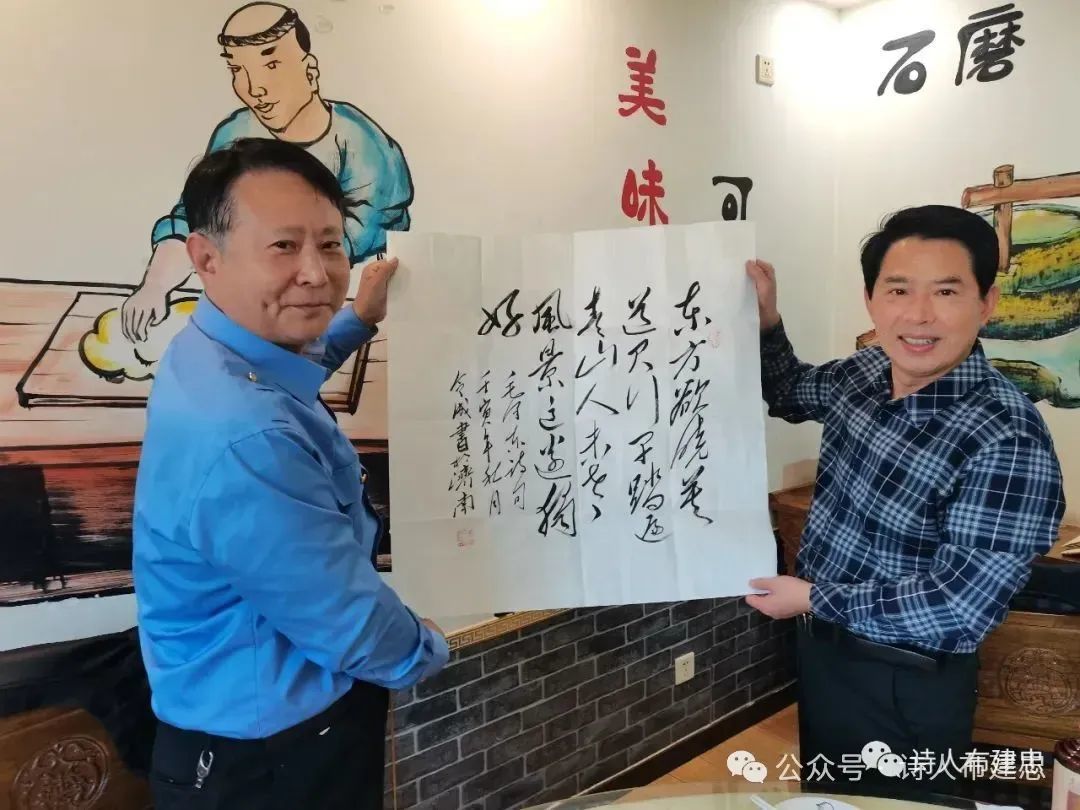 美味可
石磨
东方欲晓莫
道君行早踏遍
青山人未老
風景这边独
好
毛泽东诗句
壬寅年秋月
令成書於濟南
公众号 诗人布建忠
诗人布建忠